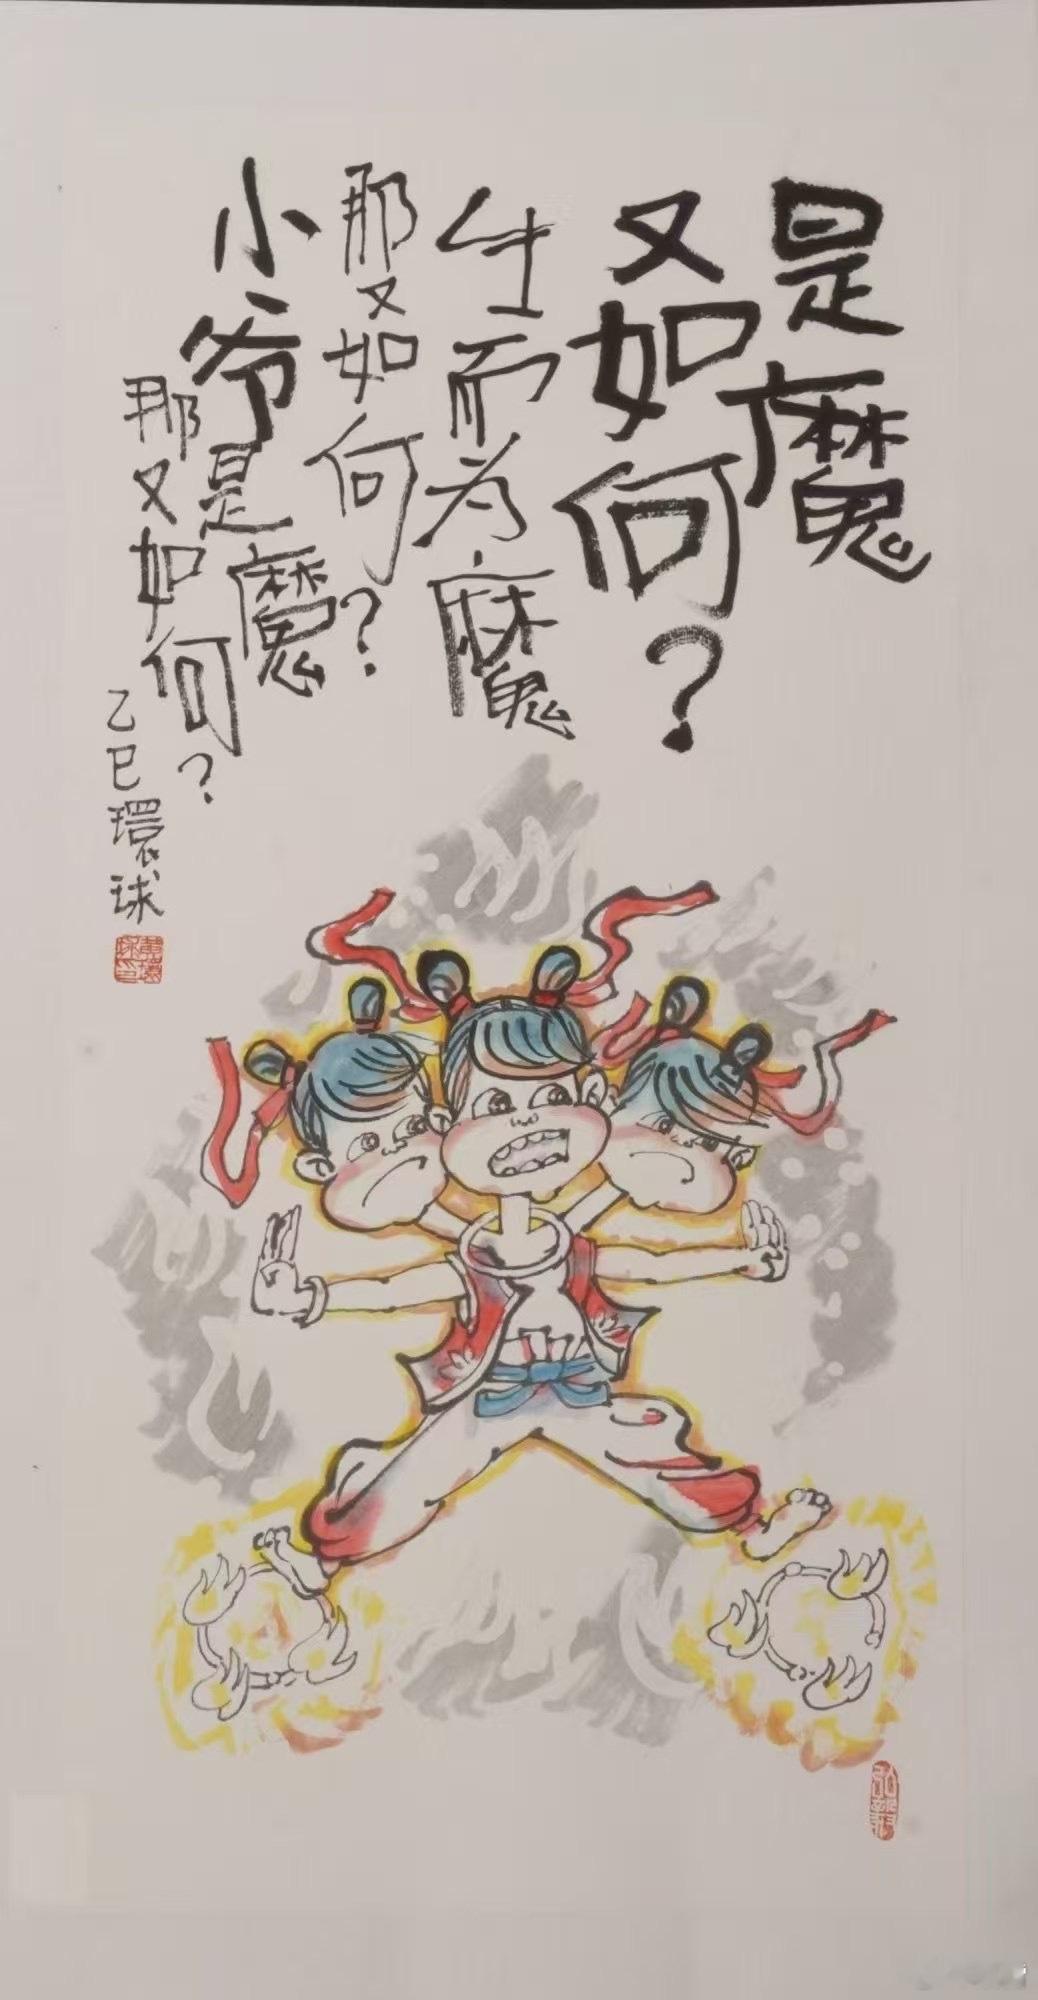 是魔
又如何？
生而为魔
那又如何？
小爷是魔
那又如何？
乙巳環球